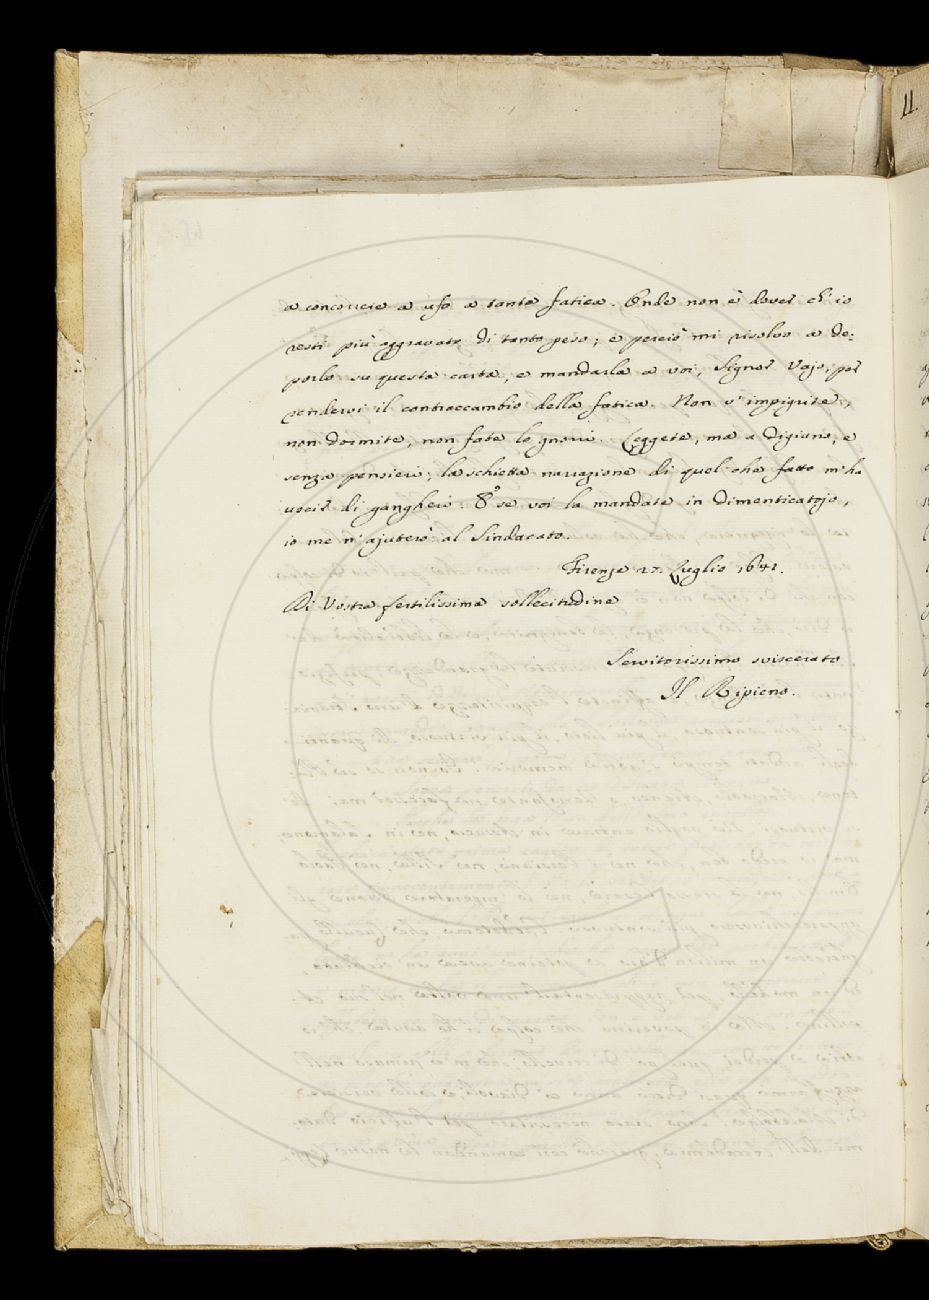 11.
a concorrere a ufo a tanta fatica. Onde non è dover ch' io
resti più aggravato di tanto peso; e perciò mi risolvo a de:
porlo su questa carta, e mandarla a voi, Signor Vajo, per
rendervi il contraccambio della fatica. Non v' impigrite,
non dormite, non fate lo gnorri. Leggete, ma a digiuno, e
senza pensieri, la schietta narrazione di quel che fatto m' ha
uscir di gangheri. E se voi la mandate in dimenticatojo,
io me n' ajuterò al Sindacato.
Firenze 27. Luglio 1641.
Di Vostra fertilissima sollecitudine
Servitorissimo sviscerato
Il Ripieno.